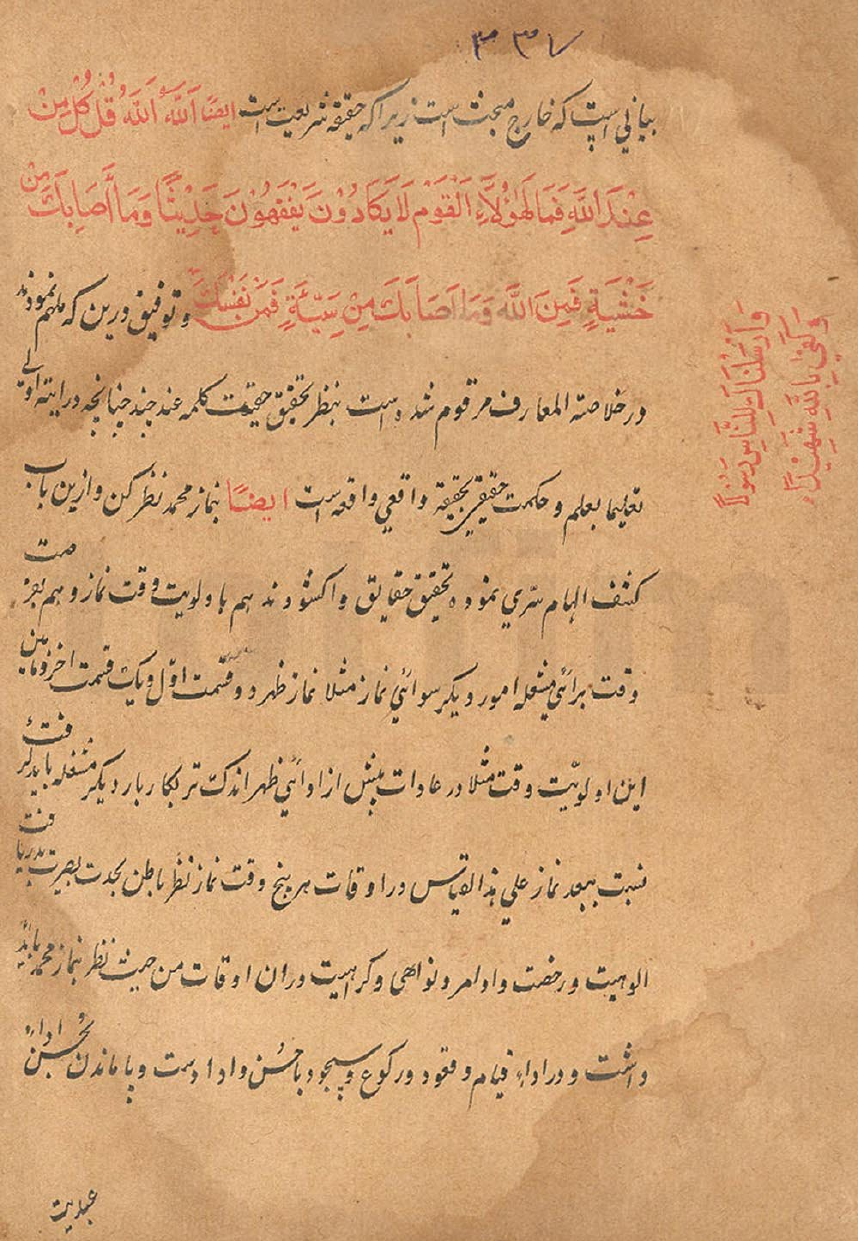 ۳۳۷
بیانی است که خارج مبحث است زیرا که حقیقة شریعت است ایضًا اَللّٰه اَللّٰه قُلْ کُلٌّ مِنْ
عِنْدَ اللّٰهِ فَمَا لِهٰؤُلَآءِ الْقَوْمِ لَا یَکَادُوْنَ یَفْقَهُوْنَ حَدِیْثًا وَمَا اَصَابَكَ مِنْ
خَشْیَةٍ فَمِنَ اللّٰه وَمَا اَصَابَكَ مِنْ سَیِّئَةٍ فَمِنْ نَفْسِكَ و توفیق درین که ملهم نمودند
وَاَرْسَلْنَاكَ لِلنَّاسِ رَسُوْلًا
وَکَفٰی بِاللّٰهِ شَهِیْدًا
در خلاصة المعارف مرقوم شده است بنظر تحقیق حقیقت کلمه عند چند چنانچه درایته اولی
تعلیما بعلم و حکمت حقیقی بحقیقة واقعی واقعه است ایضًا بنماز محمد نظر کن و ازین باب
کشف الهام سرّی نموده تحقیق حقایق وا کشوند هم باولویت وقت نماز و هم بفرصت
وقت برائی مشغله امور دیگر سوائی نماز مثلا نماز ظهر دو قسمت اوّل و یک قسمت اخر و مابین
این اولویّت وقت مثلا در عادات پیش از ادائی ظهر اندک تر بکاربار دیگر مشغله باید گرفت
نسبت ببعد نماز علی هذا القیاس در اوقات هر پنج وقت نماز نظر باطن بحدت بصیرت بدریافت
الوهیت و رخصت و اوامر و نواهی و کراهیت دران اوقات من حیث نظر بنماز محمد باید
داشت و در اداء قیام و قعود و رکوع و سجود با حُسن و ادا دست و پا ماندن بحُسن اداء
عبدیت